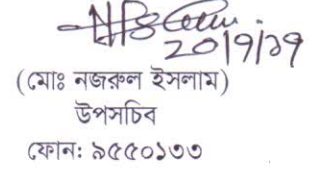 ২০/৭/১৭
(মোঃ নজরুল ইসলাম)
উপসচিব
ফোন: ৯৫৫০১৩৩